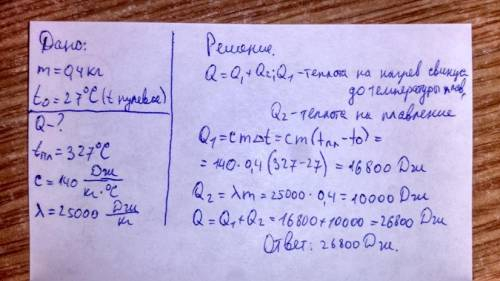 Дано:
m=0,4 кг
t₀=27°C (t нулевое)
Q-?
tпл=327°C
c=140 Дж/кг·°C
λ=25000 Дж/кг
Решение.
Q=Q₁+Q₂; Q₁-теплота на нагрев свинца
до температуры плав.
Q₂-теплота на плавление
Q₁=cmΔt=cm(tпл-t₀)=
=140·0,4(327-27)=16800 Дж
Q₂=λm=25000·0,4=10000 Дж
Q=Q₁+Q₂=16800+10000=26800 Дж
Ответ: 26800 Дж.